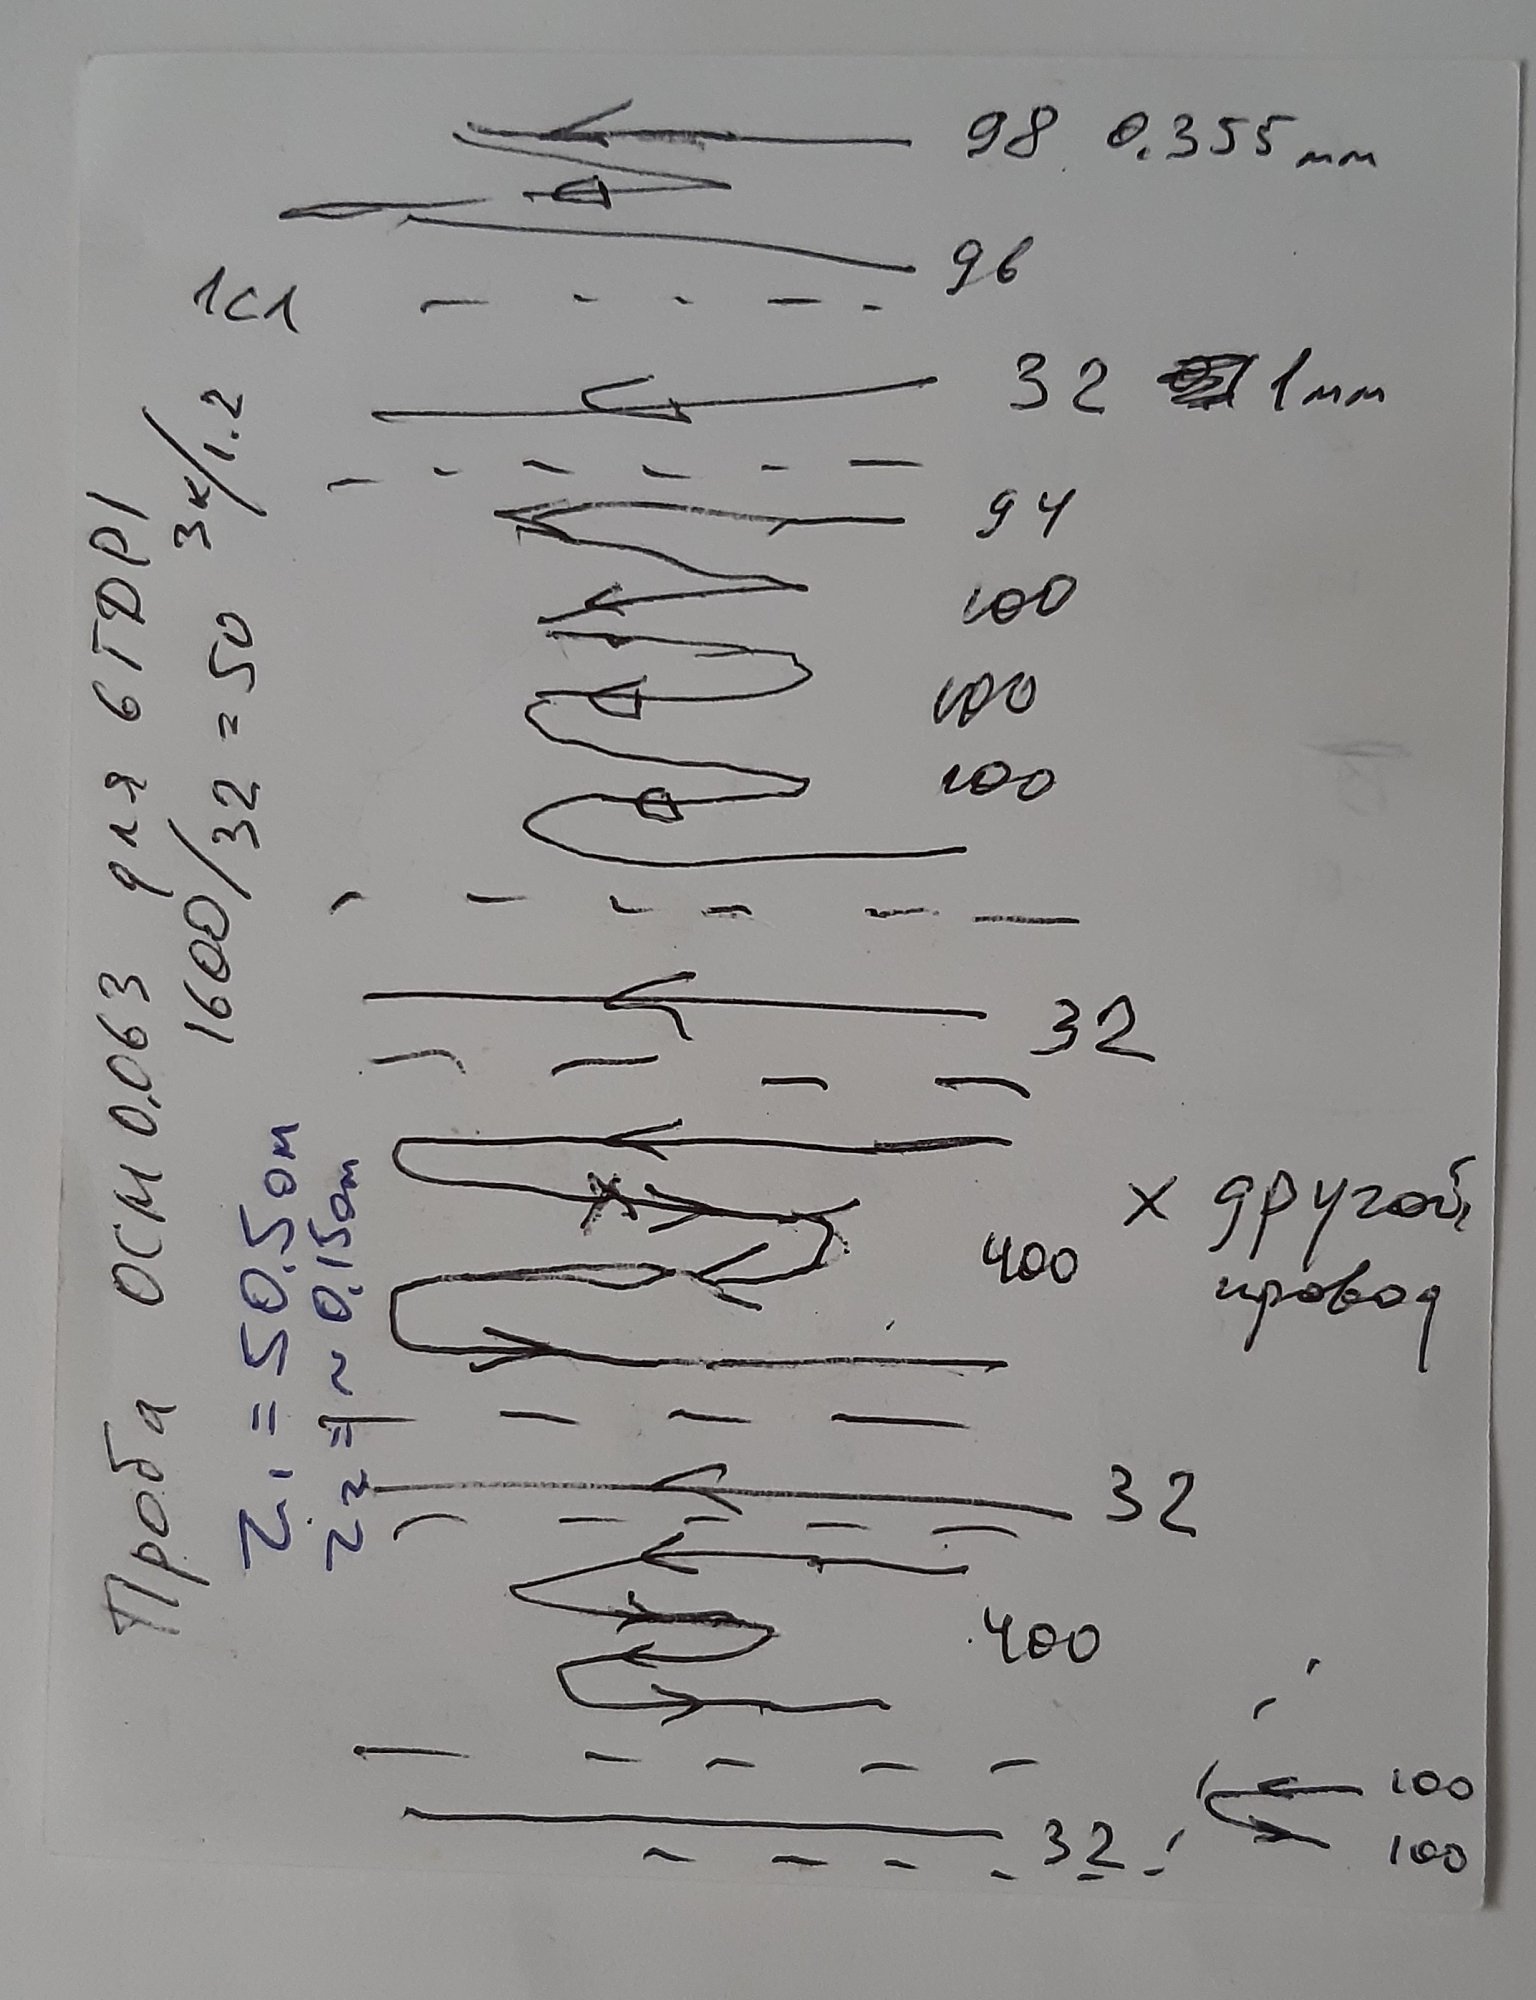 98 0.355 мм
96
1сл
32 1 мм
94
100
100
100
32
400
х другой
провод
32
400
32
100
100
Проба ОСМ 0.063 для 6ГДР1
1600/32 = 50 3к/1.2
r1 = 50.5 ом
r2 = ~ 0.15 ом